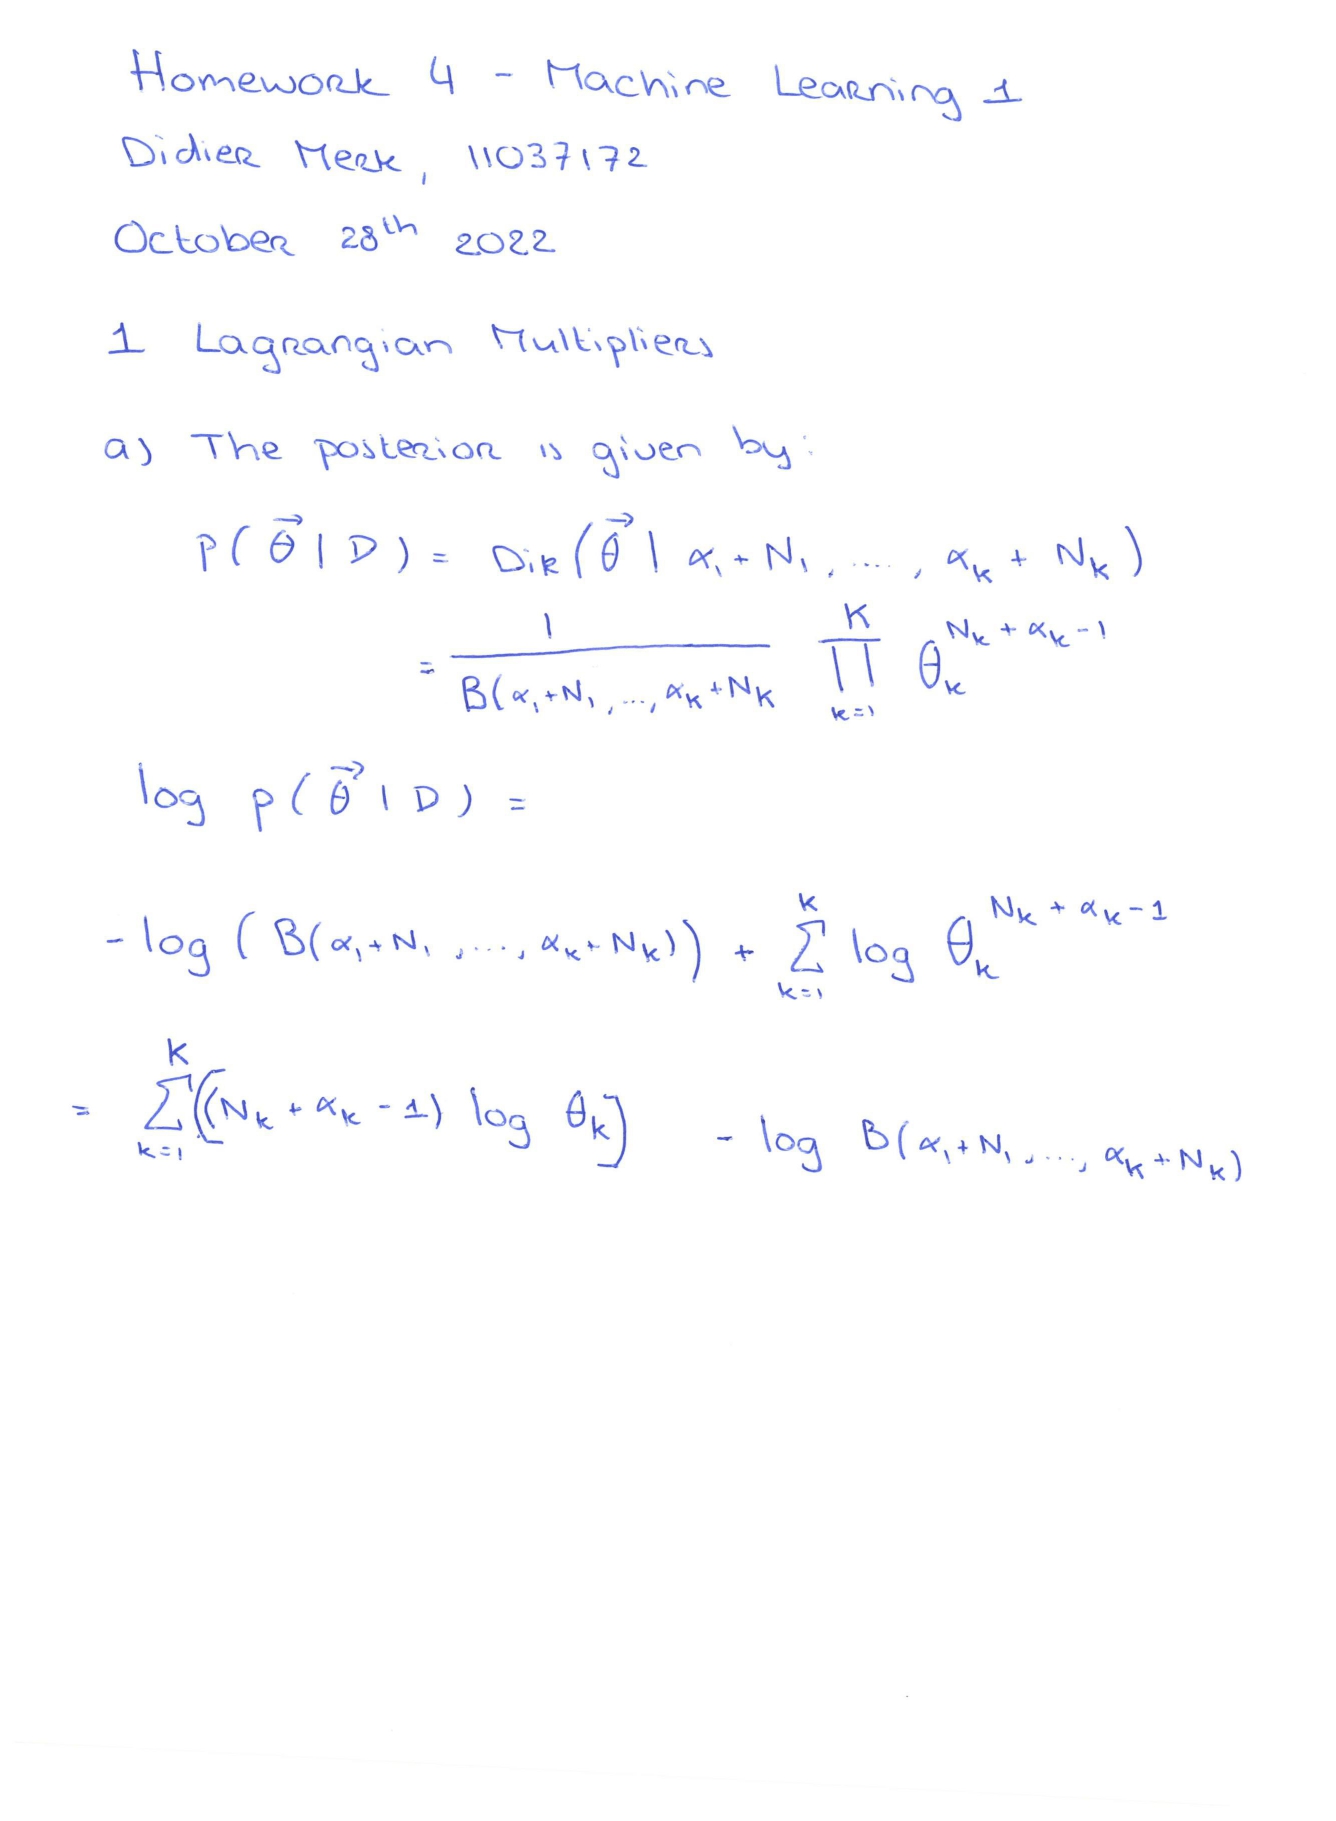 Homework 4 - Machine Learning 1
Didier Merk, 11037172
October 28th 2022
1 Lagrangian Multipliers
a) The posterior is given by:
P(θ⃗ | D) = Dir(θ⃗ | α₁ + N₁, ...., αₖ + Nₖ)
= 1 / B(α₁+N₁, ..., αₖ+Nₖ ∏_{k=1}^{K} θₖ^{Nₖ + αₖ - 1}
log p(θ⃗ | D) =
- log (B(α₁+N₁, ..., αₖ+Nₖ)) + ∑_{k=1}^{K} log θₖ^{Nₖ + αₖ - 1}
= ∑_{k=1}^{K} [(Nₖ + αₖ - 1) log θₖ] - log B(α₁+N₁, ..., αₖ+Nₖ)